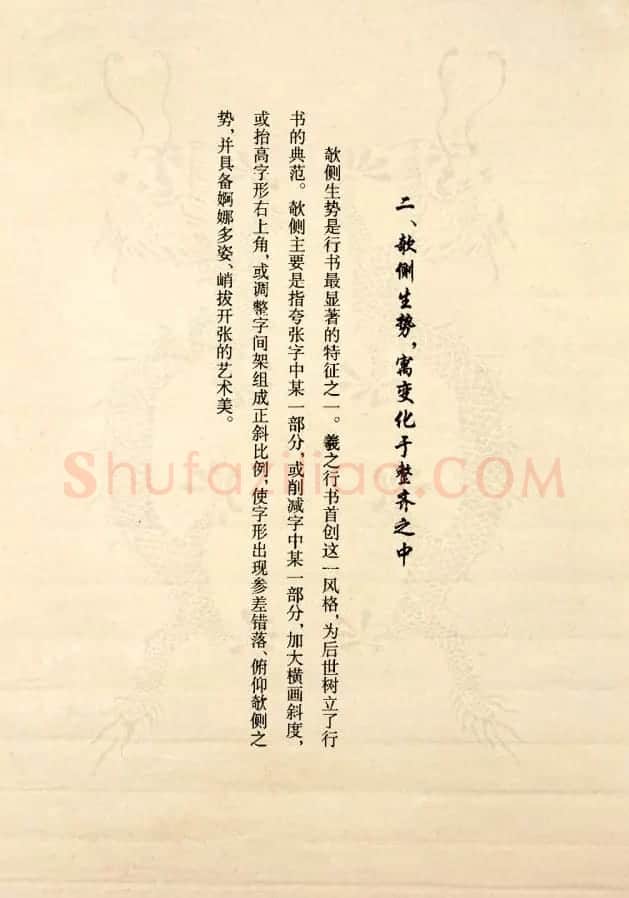 二、欹侧生势，寓变化于整齐之中
欹侧生势是行书最显著的特征之一。羲之行书首创这一风格，为后世树立了行
书的典范。欹侧主要是指夸张字中某一部分，或削减字中某一部分，加大横画斜度，
或抬高字形右上角，或调整字间架组成正斜比例，使字形出现参差错落、俯仰欹侧之
势，并具备婀娜多姿、峭拔开张的艺术美。
Shufazijiao.COM